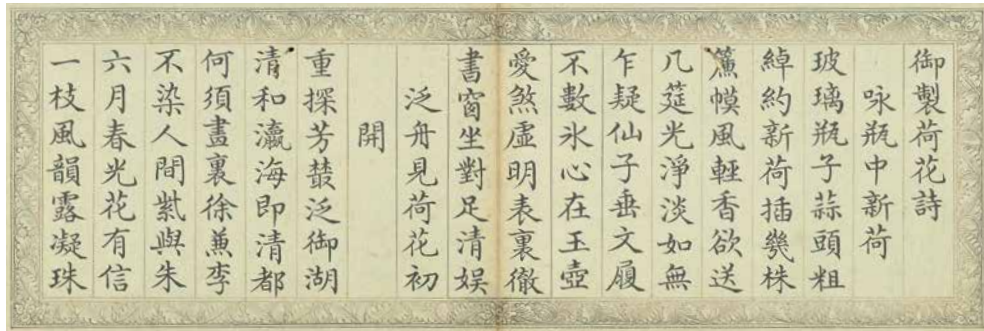 御製荷花詩
咏瓶中新荷
玻璃瓶子蒜頭粗
綽約新荷插幾株
簾幙風輕香欲送
几筵光淨淡如無
乍疑仙子垂文履
不數氷心在玉壺
愛煞虛明表裏徹
書窗坐對足清娱
泛舟見荷花初
開
重探芳叢泛御湖
清和瀛海即清都
何須畫裏徐兼李
不染人間紫與朱
六月春光花有信
一枝風韻露凝珠